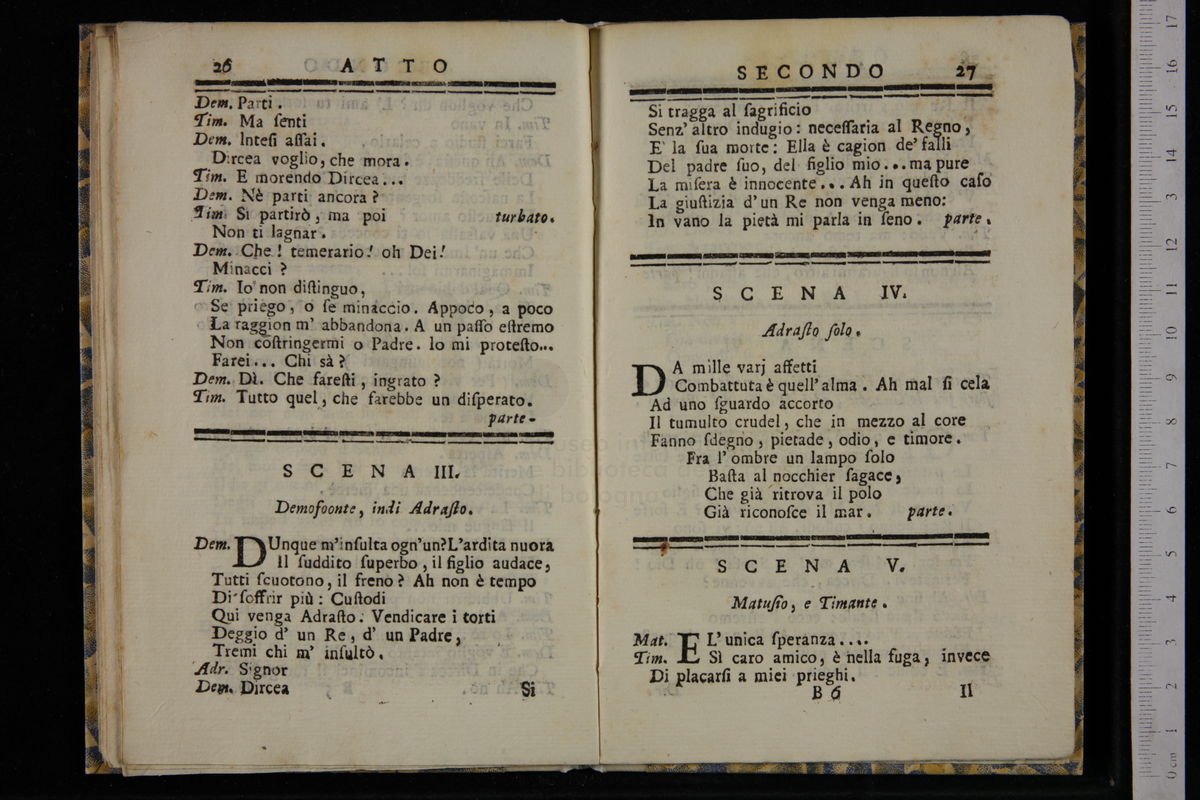 26 ATTO
Dem. Parti.
Tim. Ma ſenti
Dem. Inteſi aſſai.
Dircea voglio, che mora.
Tim. E morendo Dircea...
Dem. Nè parti ancora?
Tim. Si partirò, ma poi turbato.
Non ti lagnar.
Dem. Che! temerario! oh Dei!
Minacci?
Tim. Io non diſtinguo,
Se priego, o ſe minaccio. Appoco, a poco
La raggion m' abbandona. A un paſſo eſtremo
Non coſtringermi o Padre. Io mi proteſto...
Farei... Chi sà?
Dem. Dì. Che fareſti, ingrato?
Tim. Tutto quel, che farebbe un diſperato.
parte.
SCENA III.
Demofoonte, indi Adraſto.
Dem. DUnque m'inſulta ogn'un? L'ardita nuora
Il ſuddito ſuperbo, il figlio audace,
Tutti ſcuotono, il freno? Ah non è tempo
Di ſoffrir più: Cuſtodi
Qui venga Adraſto. Vendicare i torti
Deggio d' un Re, d' un Padre,
Tremi chi m' inſultò.
Adr. Signor
Dem. Dircea Si
SECONDO 27
Si tragga al ſagrificio
Senz' altro indugio: neceſſaria al Regno,
E' la ſua morte: Ella è cagion de' falli
Del padre ſuo, del figlio mio... ma pure
La miſera è innocente... Ah in queſto caſo
La giuſtizia d' un Re non venga meno:
In vano la pietà mi parla in ſeno. parte.
SCENA IV.
Adraſto ſolo.
DA mille varj affetti
Combattuta è quell' alma. Ah mal ſi cela
Ad uno ſguardo accorto
Il tumulto crudel, che in mezzo al core
Fanno ſdegno, pietade, odio, e timore.
Fra l' ombre un lampo ſolo
Baſta al nocchier ſagace,
Che già ritrova il polo
Già riconoſce il mar. parte.
SCENA V.
Matuſio, e Timante.
Mat. EL' unica ſperanza....
Tim. Sì caro amico, è nella fuga, invece
Di placarſi a miei prieghi.
B 6 Il